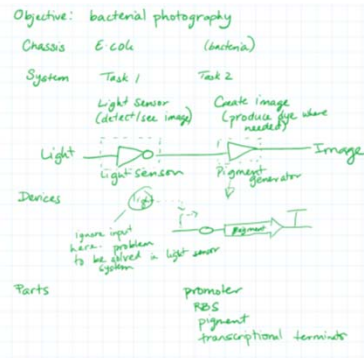 Objective: bacterial photography
Chassis E. coli (bacteria)
System Task 1 Task 2
Light Sensor Create image
(detect/see image) (produce dye where
needed)
Light Image
Light Sensor Pigment
generator
Devices
light
pigment
ignore input
here. problem
to be solved in light sensor
system
Parts
promoter
RBS
pigment
transcriptional